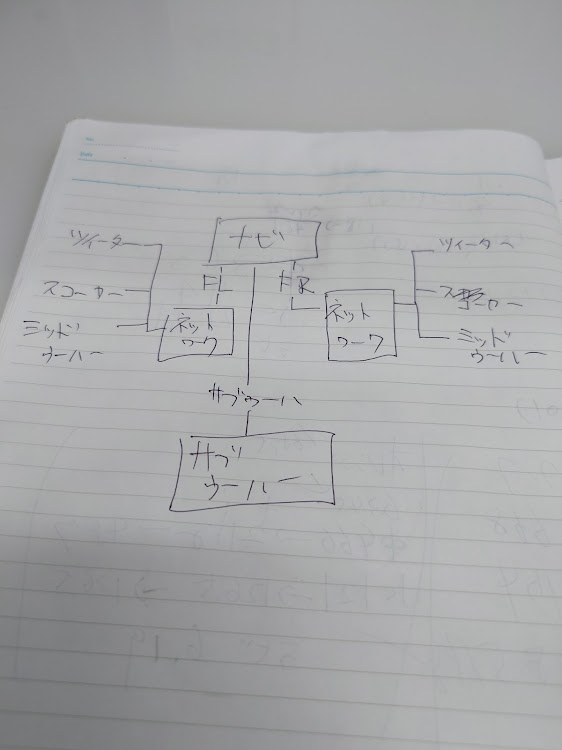 No.
Date
ナビ
ツィーター
スコーカー
ミッド
ウーハー
FL
ネット
ワーク
FR
ネット
ワーク
ツィーター
スコーカー
ミッド
ウーハー
サブウーハ
サブ
ウーハー